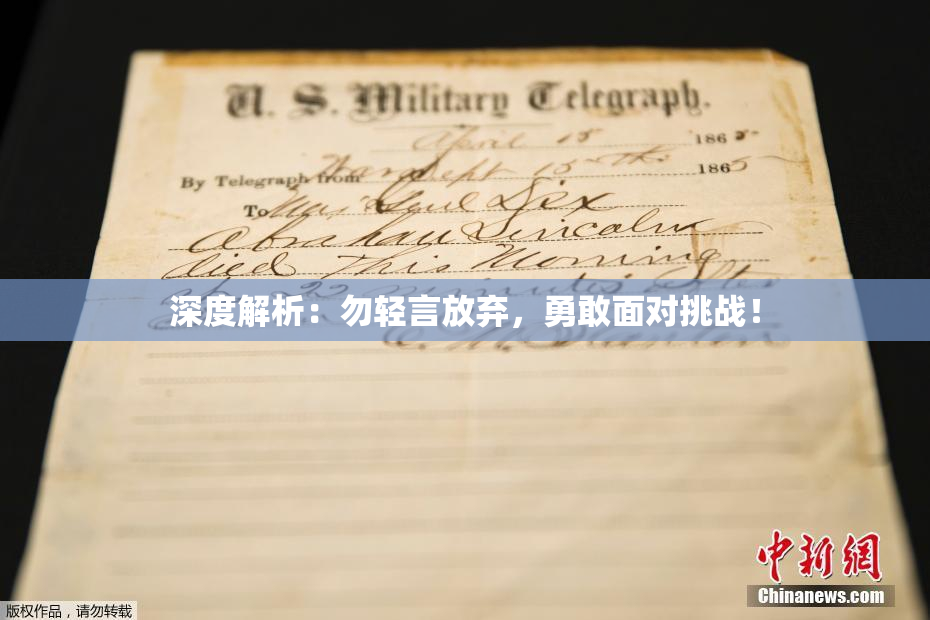 U. S. Military Telegraph.
April 15 1865.
By Telegraph from War Dept 15th 1865
To Maj Genl Dix
Abraham Lincoln
died This Morning
at 22 minutes after
深度解析：勿轻言放弃，勇敢面对挑战！
Stanton
中新網
Chinanews.com
版权作品，请勿转载